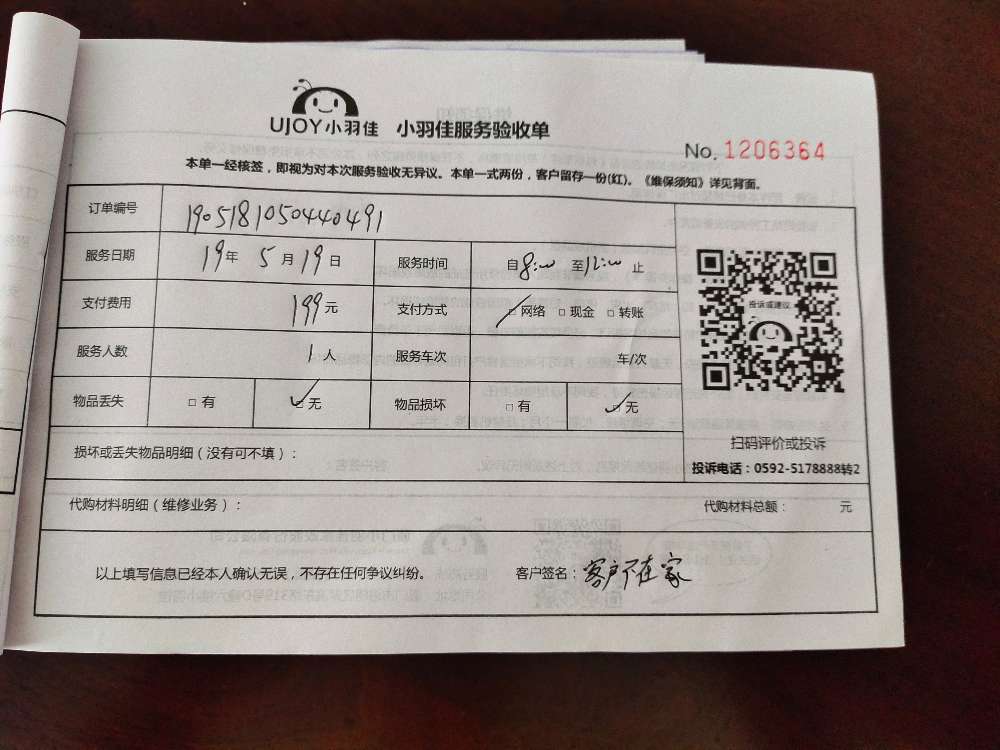 UJOY小羽佳 小羽佳服务验收单
No. 1206364
本单一经核签，即视为对本次服务验收无异议。本单一式两份，客户留存一份(红)。《维保须知》详见背面。
订单编号 1905181050440491
服务日期 19年 5月19日 服务时间 自8:00 至12:00 止
支付费用 199元 支付方式 □网络 □现金 □转账
投诉或建议
服务人数 1人 服务车次 车/次
物品丢失 □有 □无 物品损坏 □有 □无
扫码评价或投诉
损坏或丢失物品明细（没有可不填）：
投诉电话：0592-5178888转2
代购材料明细（维修业务）： 代购材料总额： 元
以上填写信息已经本人确认无误，不存在任何争议纠纷。 客户签名：客户不在家